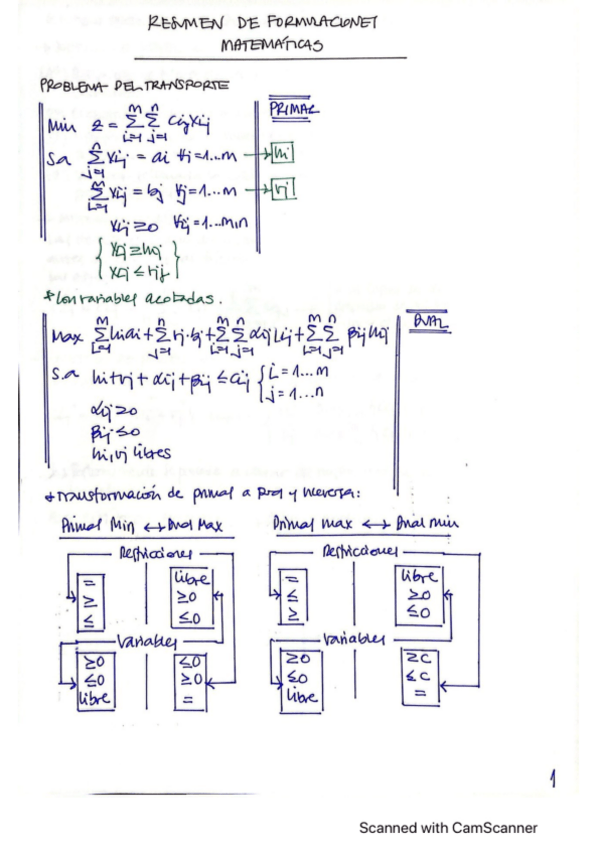 RESUMEN DE FORMULACIONES
MATEMÁTICAS
PROBLEMA DEL TRANSPORTE
PRIMAL
Min z = Σ(i=1..m) Σ(j=1..n) cij xij
Sa Σ(j=1..n) xij = ai ∀i=1...m → ui
Σ(i=1..m) xij = bj ∀j=1...m → vj
xij ≥ 0 ∀ij=1...m,n
{ xij ≥ hij
xij ≤ rij }
* Con variables acotadas.
DUAL
Max Σ(i=1..m) ui ai + Σ(j=1..n) vj·bj + Σ(i=1..m) Σ(j=1..n) αij lij + Σ(i=1..m) Σ(j=1..n) βij hij
S.a ui + vj + αij + βij ≤ cij { i=1...m
j=1...n
αij ≥ 0
βij ≤ 0
ui, vj libres
* Transformación de primal a dual y inversa:
Primal Min ↔ Dual Max
Restricciones
= libre
≥ ≥0
≤ ≤0
Variables
≥0 ≤0
≤0 ≥0
libre =
Primal max ↔ Dual min
Restricciones
= libre
≤ ≥0
≥ ≤0
Variables
≥0 ≥C
≤0 ≤C
libre =
1
Scanned with CamScanner